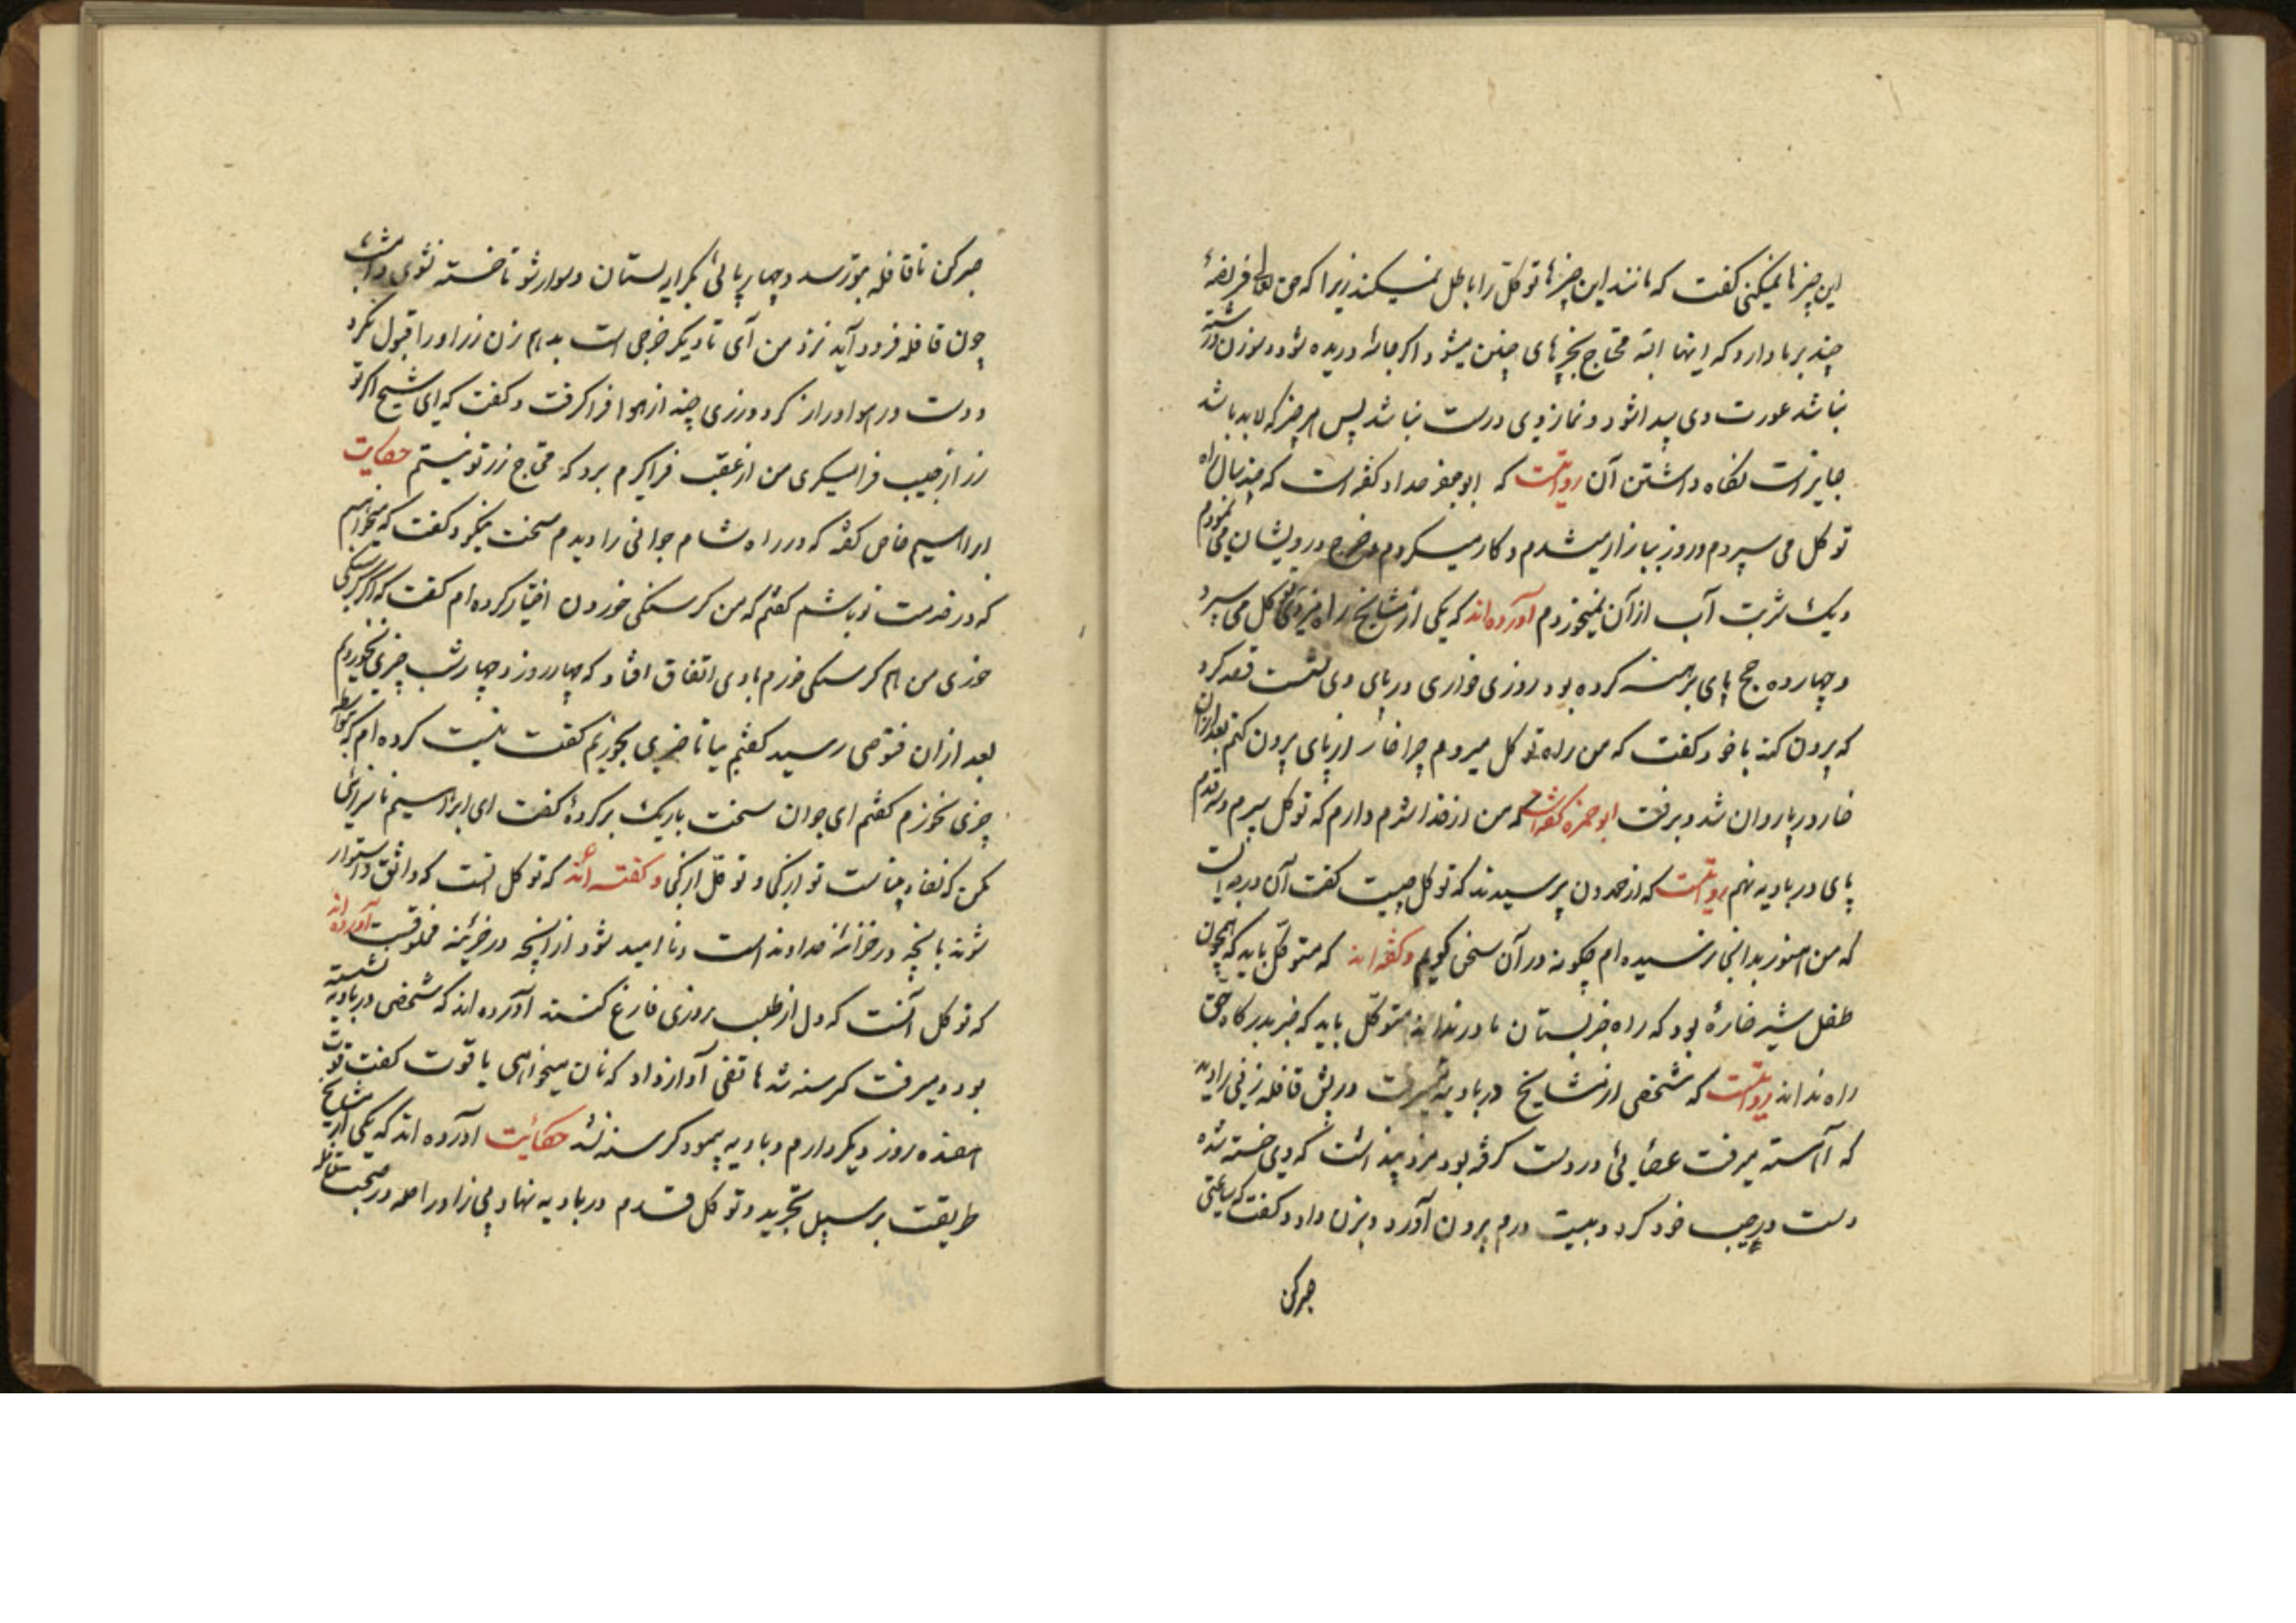 این چیزها نمیکنی گفت که مانند این چیزها توکل را باطل نمیکند زیرا که حق تعالی فریضهٔ
چند بر ما دارد که اینها البته محتاج بچیزهای چنین میشود اگر جامه دریده شود و سوزن و رشته
نباشد عورت وی پیدا شود و نماز وی درست نباشد پس هر چیز که لابد باشد
جایز است نگاه داشتن آن روایتست که ابو جعفر حداد گفته است که چند سال راه
توکل می سپردم و روز ببازار میشدم و کار میکردم و خرج درویشان می نمودم
و یک شربت آب از آن نمیخوردم آورده اند که یکی از مشایخ راه توکل می سپرد
و چهارده حج پای برهنه کرده بود روزی خاری در پای وی نشست قصد کرد
که برون کند با خود گفت که من راه توکل میروم چرا خار از پای برون کنم بعد ازان
خار در پا روان شد و برفت ابو حمزه گفته است که من از خدا شرم دارم که توکل سپرم و قدم
پای در بادیه نهم روایتست که از حمدون پرسیدند که توکل چیست گفت آن درجه ایست
که من هنوز بدانجا نرسیده ام چگونه در آن سخن گویم و گفته اند که متوکل باید که همچون
طفل شیر خاره بود که راه جز پستان مادر نداند متوکل باید که جز بدرگاه حق
راه نداند روایتست که شخصی از مشایخ در بادیه میرفت در پش قافله زنی را دید
که آهسته میرفت عصایی در دست گرفته بود مرد پنداشت که وی خسته شده
دست در جیب خود کرد و بیست درم برون آورد و بزن داد و گفت که ساعتی
صبر کن
صبر کن تا قافله بتو رسد و چهارپائی بکرایه بستان و سوار شو تا خسته نشوی و
چون قافله فرود آید نزد من آی تا دیگر خرجی است بدهم زن زر او را قبول نکرد
و دست در هوا دراز کرد و زری چند از هوا فرا گرفت و گفت که ای شیخ اگر تو
زر از جیب فرا میگیری من از غیب فرا گیرم برو که محتاج زر تو نیستم حکایت
ابراهیم خاص گفته که در راه شام جوانی را دیدم سخت نیکو گفت که میخواهم
که در خدمت تو باشم گفتم که من گرسنگی خوردن اختیار کرده ام گفت که اگر گرسنگی
خوری من هم گرسنگی خورم با وی اتفاق افتاد که چهار روز و چهار شب چیزی نخوردیم
بعد ازان فتوحی رسید گفتم بیا تا چیزی بخوریم گفت نیت کرده ام که بواسطه
چیزی نخورم گفتم ای جوان سخت باریک برگردهٔ گفت ای ابراهیم ناسزائی
مکن که نقاد بیناست تو از کی و توکل از کی و گفته اند که توکل انست که واثق و استوار
شوند بانچه در خزانهٔ خداوند است و نا امید شود ازانچه در خزینه مخلوقست آورده اند
که توکل آنست که دل از طلب روزی فارغ کنند آورده اند که شخصی در بادیه نشسته
بود و میرفت گرسنه شد هاتفی آواز داد که نان میخواهی یا قوت گفت قوت
هفده روز دیگر دارم و بادیه پیمود گرسنه نشد حکایت آورده اند که یکی از مشایخ
طریقت بر سبیل تجرید و توکل قدم در بادیه نهاد بی زاد و راحله در صحبت قافله